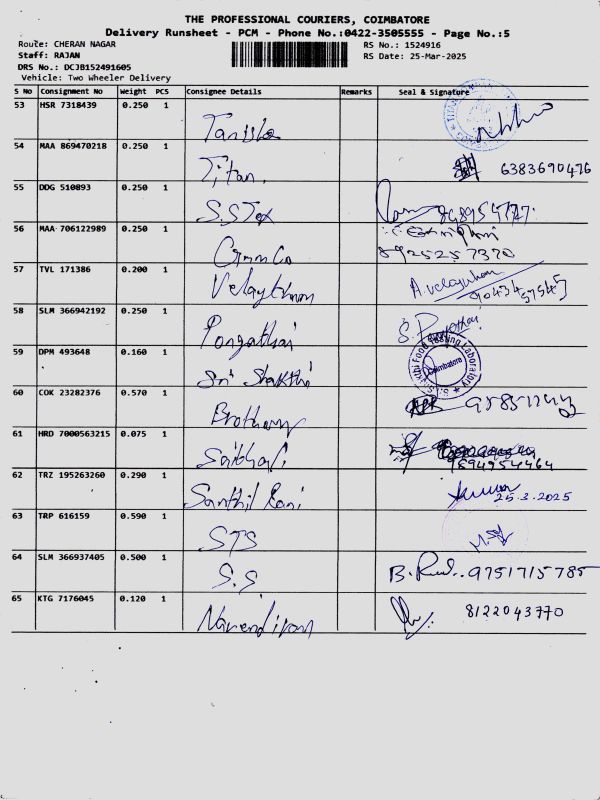 THE PROFESSIONAL COURIERS, COIMBATORE
Delivery Runsheet - PCM - Phone No.:0422-3505555 - Page No.:5
Route: CHERAN NAGAR
RS No.: 1524916
Staff: RAJAN
RS Date: 25-Mar-2025
DRS No.: DCJB152491605
Vehicle: Two Wheeler Delivery
S No Consignment No Weight PCS Consignee Details Remarks Seal & Signature
53 HSR 7318439 0.250 1
54 MAA 869470218 0.250 1
Titan. 6383690476
55 DDG 510893 0.250 1
S.S Tex
56 MAA 706122989 0.250 1
8925257370
57 TVL 171386 0.200 1
A.velayuthan
58 SLM 366942192 0.250 1
59 DPM 493648 0.160 1
Food Testing Laboratory
Coimbatore
Sri Shakthi
60 COK 23282376 0.570 1
61 HRD 7000563215 0.075 1
62 TRZ 195263260 0.290 1
Santhil Rani
25.3.2025
63 TRP 616159 0.590 1
STS
64 SLM 366937405 0.500 1
S.S. 9751715785
65 KTG 7176045 0.120 1
8122043770